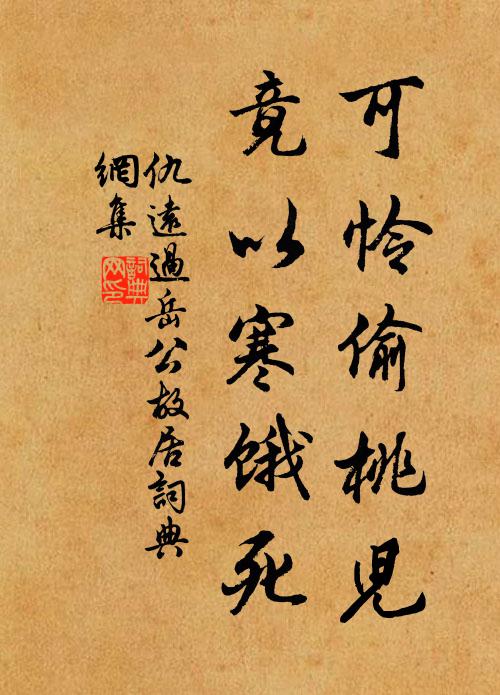 可怜偷桃児
竟以寒餓死
仇遠過岳公故居詞典
網集
詞典
网印